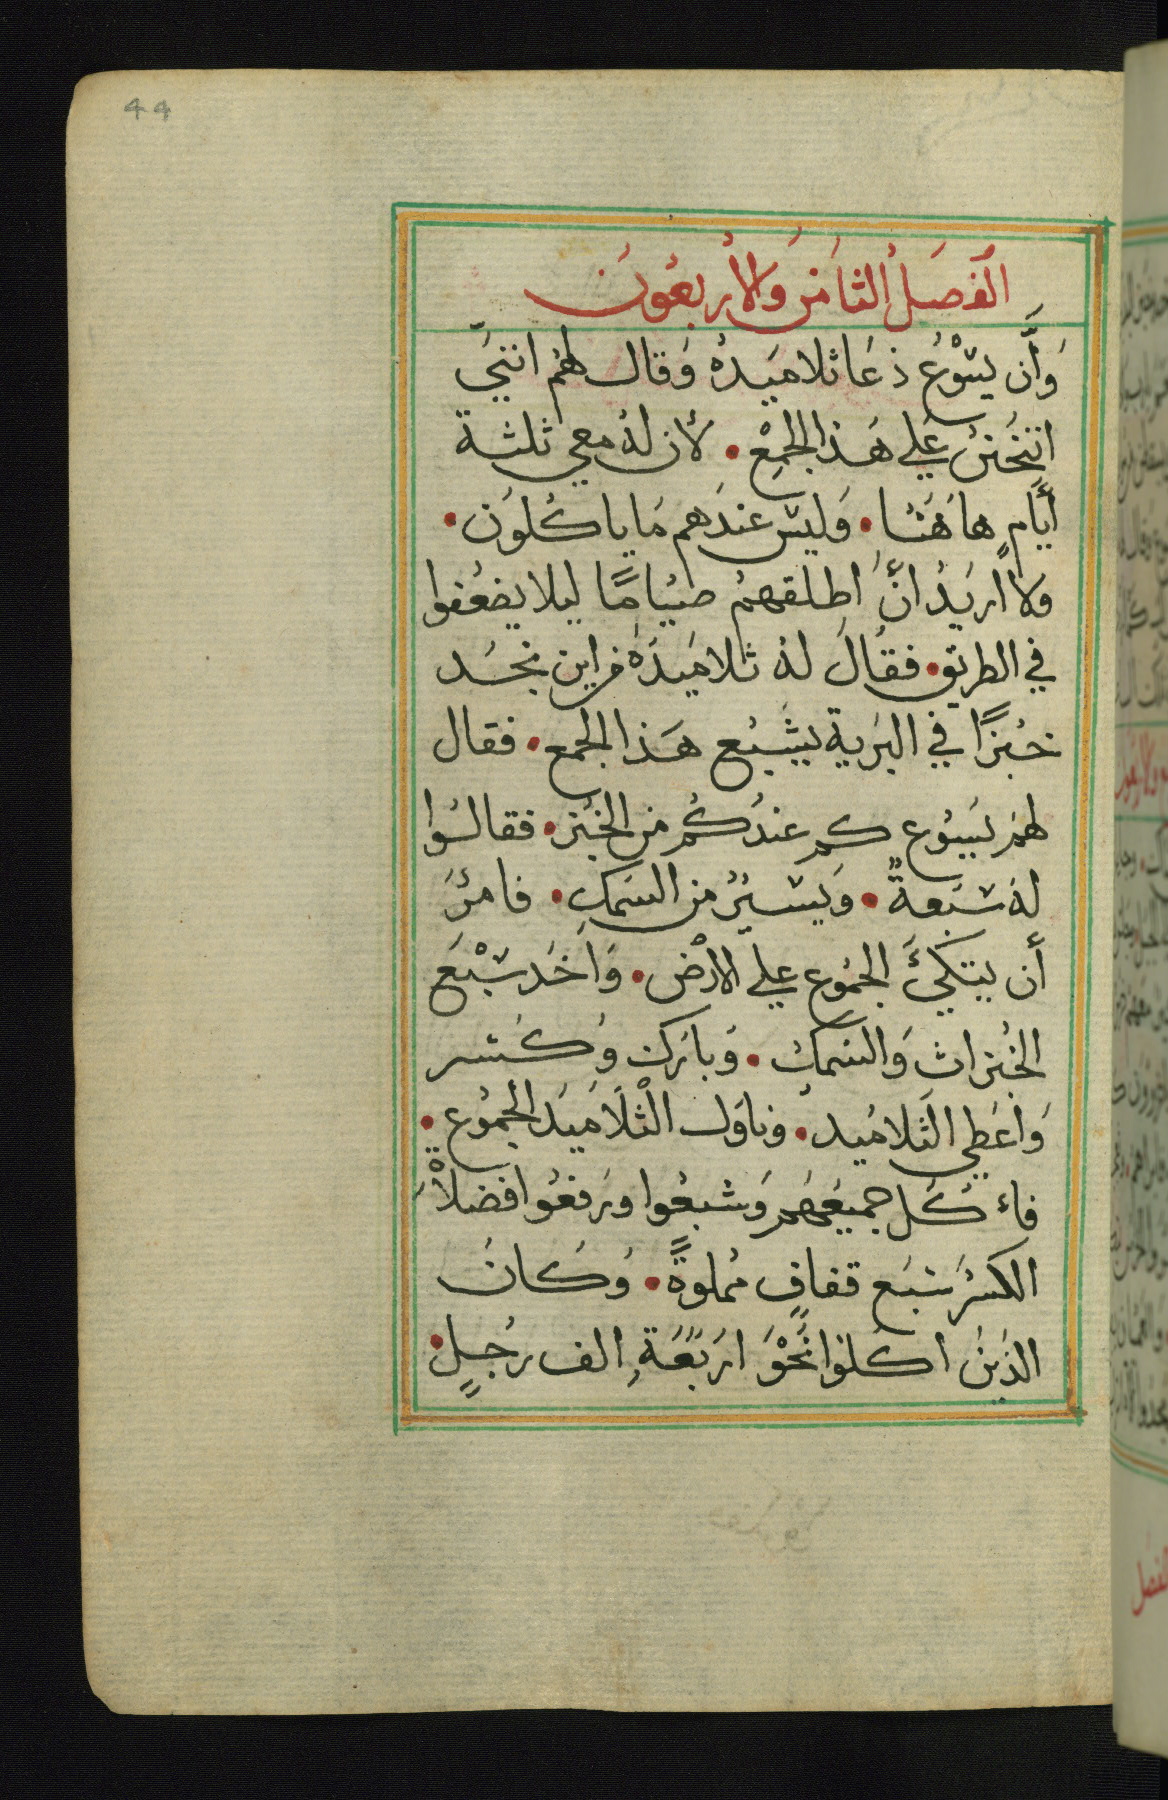 44
الفصل الثامن والاربعون
وَأَن يسْوُع دعَا تلاميدُه وَقال لهُم انني
اتحنن علي هَذا الجمْع • لأن لهُ معي ثلثة
أيَامٍ هاهَنُا • وَليس عندَهم مَا ياكُلوَن •
ولا اُريَدُ انَّ اطلقهمُ صيُامًا ليلا يضعُفوا
في الطريق • فقُالَ لهُ تلاميَدَه من اين نجُد
خبُزًا في البَرية يشَبُع هَذا الجمع • فقال
لهمَ يَسوُع كم عندُكُم من الخبُز • فقالوُا
لهَ سَبَعةً • وَيَسيرُ من السَمكِ • فامرَ
أن يتكئَ الجمُوع علي الارْض • وَاَخَد سَبْعَ
الخبُزات وَالسَمكُ • وَباَرَك وُكَسر
وَاعَطي الَتلامُيد • وَناوَل الْتلَامَيدَ الجمُوعِ •
فاء كُل جميعَهَم وَشبعُوا ورَفعُوا فضلاْتُ
الكسُرَ سَبَع قفافٍ مُملوةً • وُكانَ
الدَينُ اكَلوُا نُحْوَ ارَبَعَةِ الف رجُلٍ •